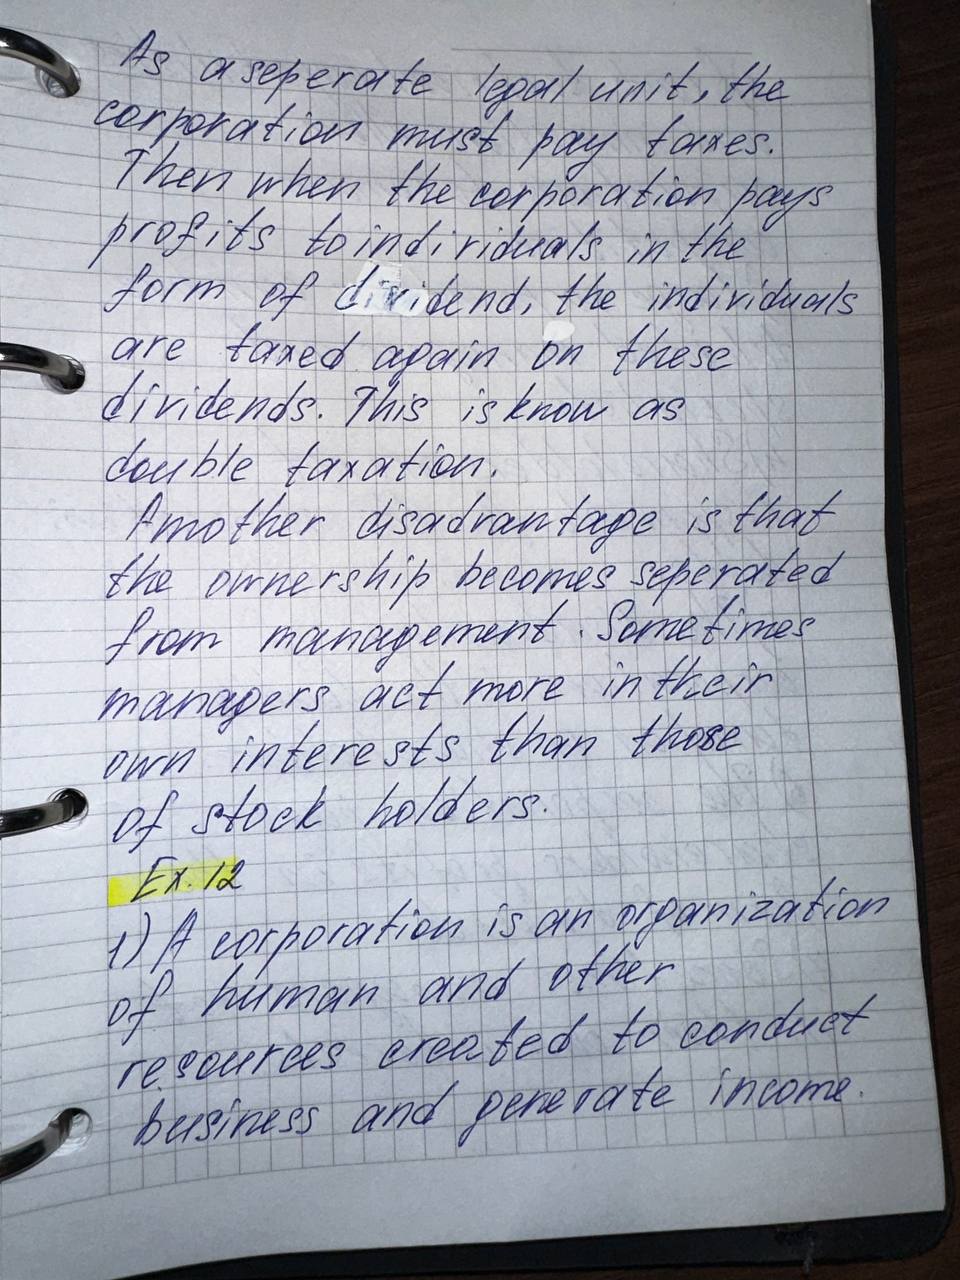 As a seperate legal unit, the
corporation must pay taxes.
Then when the corporation pays
profits to individuals in the
form of dividend, the individuals
are taxed again on these
dividends. This is know as
double taxation.
Amother disadvantage is that
the ownership becomes seperated
from management. Sometimes
managers act more in their
own interests than those
of stock holders.
Ex. 12
1) A corporation is an organization
of human and other
resources created to conduct
business and generate income.